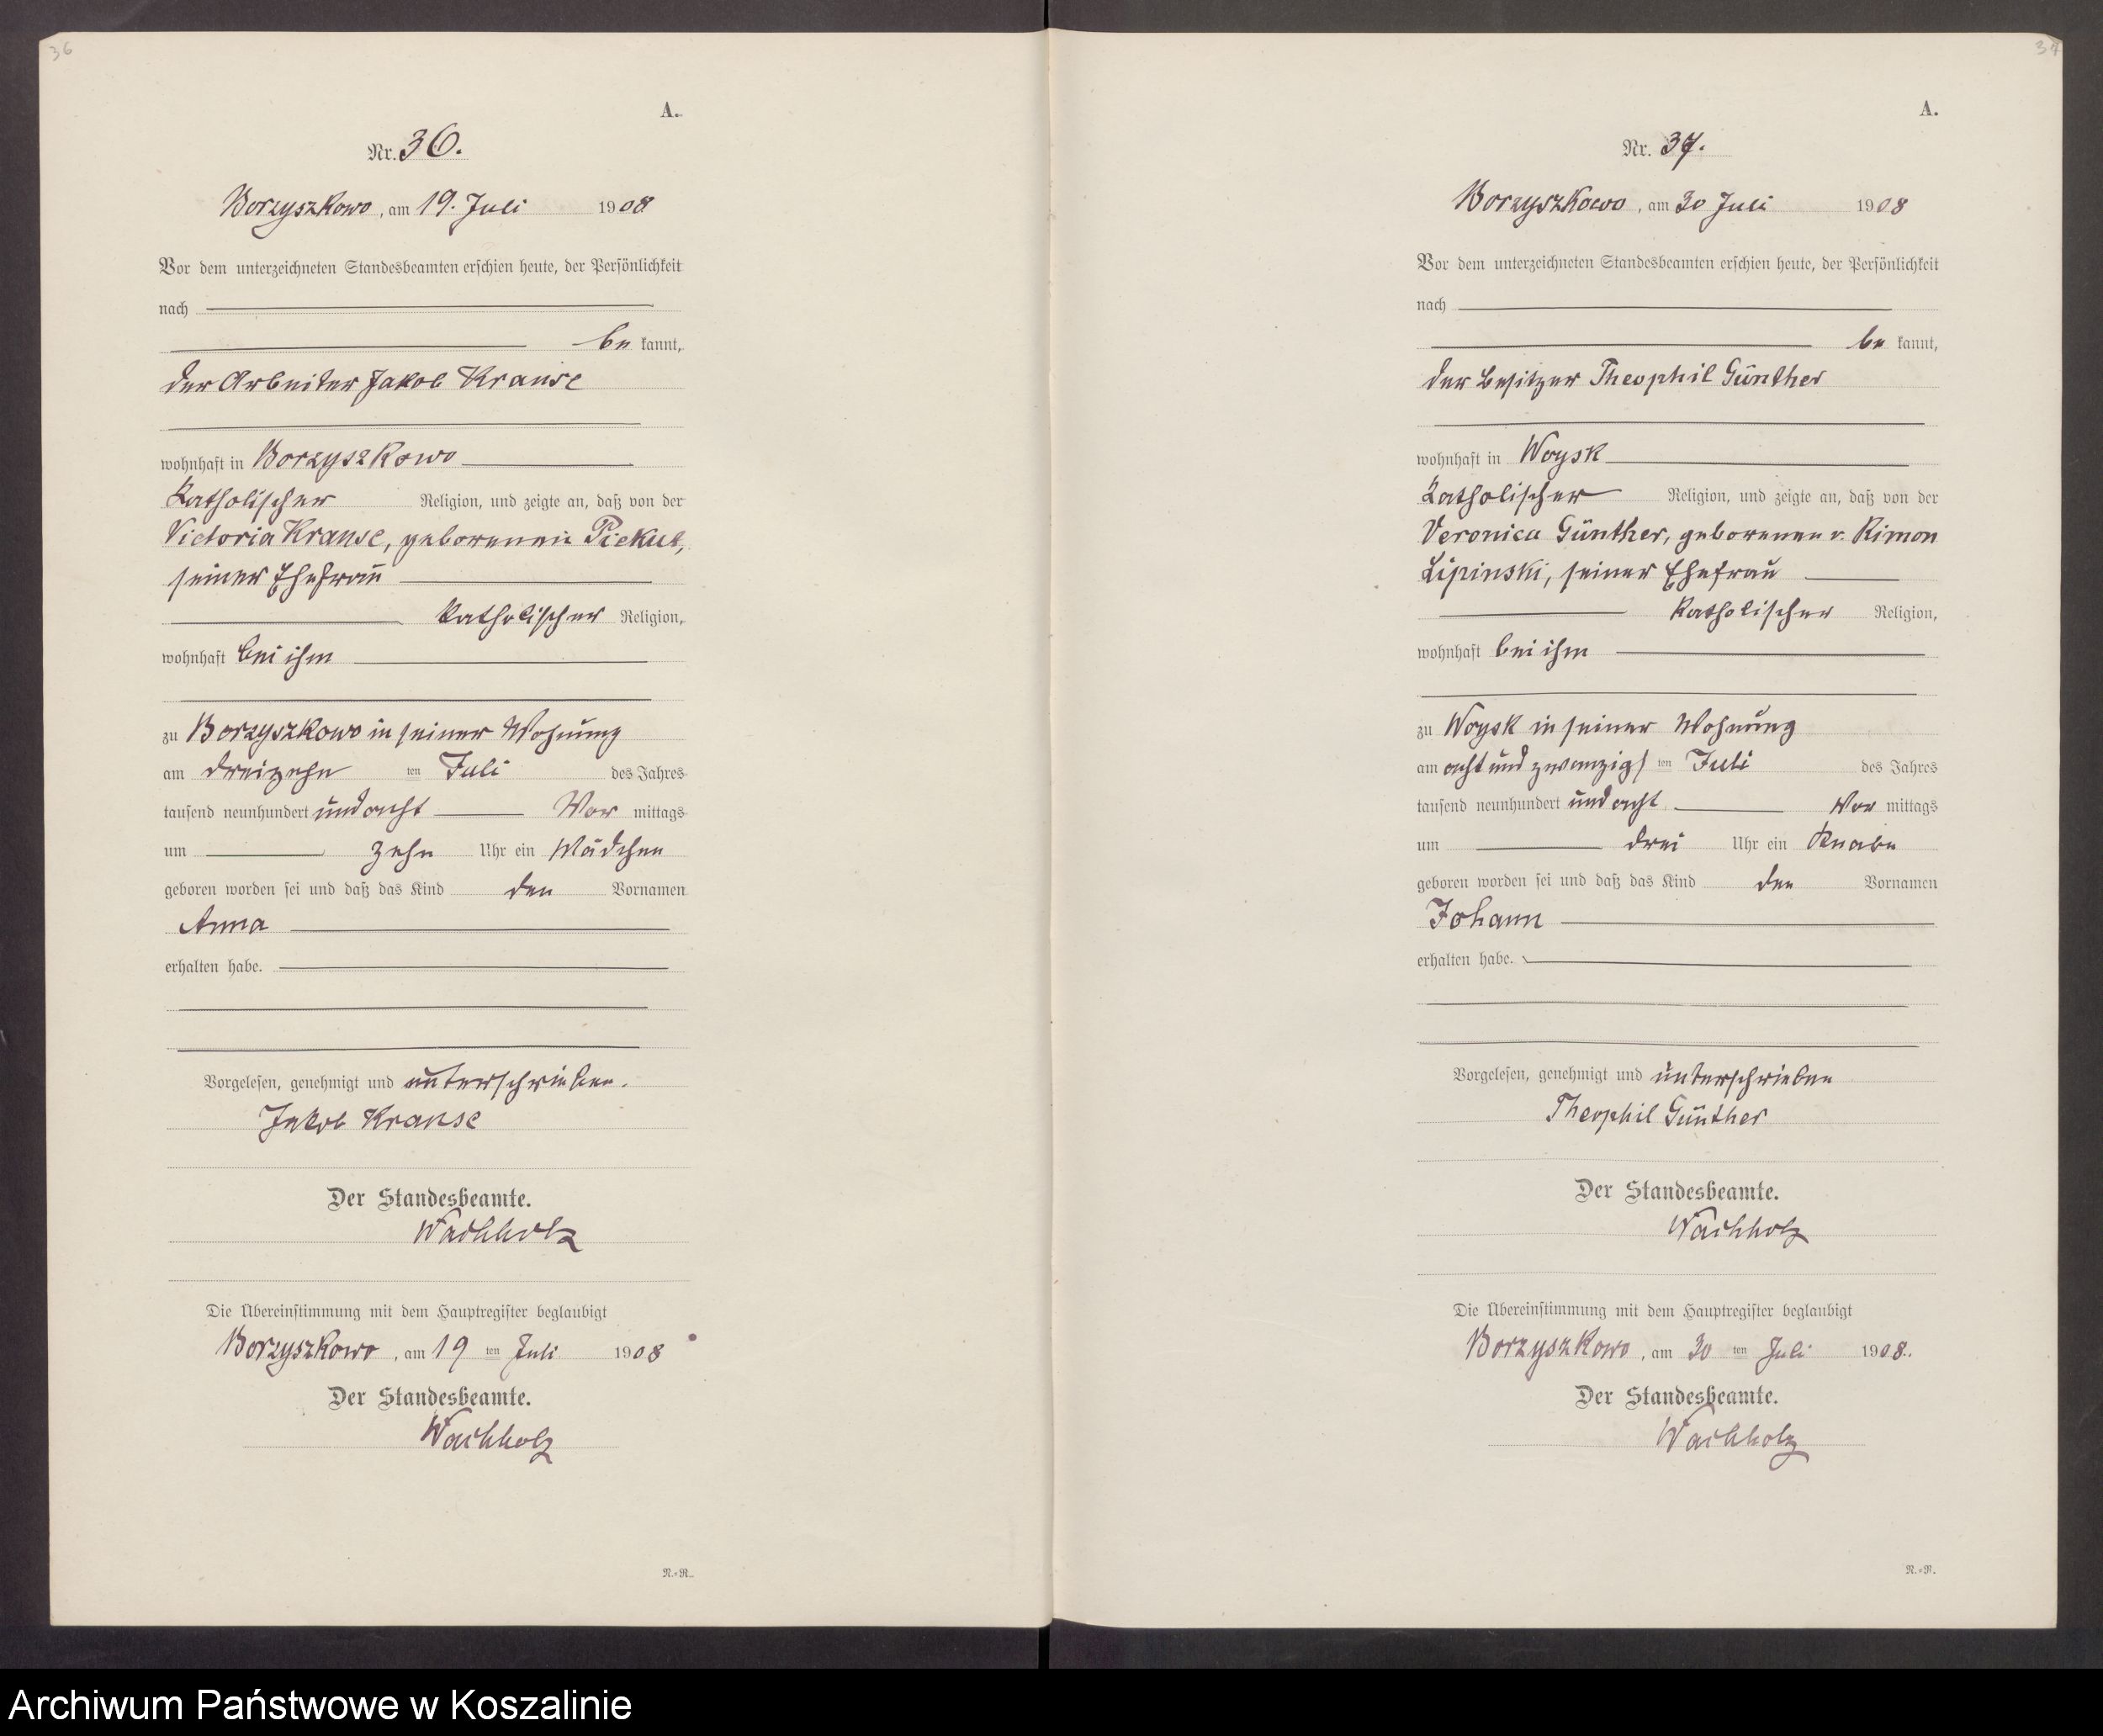 36
A.
Nr. 36.
Borzyszkowo, am 19. Juli 1908
Vor dem unterzeichneten Standesbeamten erschien heute, der Persönlichkeit
nach
be kannt,
der Arbeiter Jakob Krause
wohnhaft in Borzyszkowo
katholischer Religion, und zeigte an, daß von der
Victoria Krause, geborenen Piekut,
seiner Ehefrau
katholischer Religion,
wohnhaft bei ihm
zu Borzyszkowo in seiner Wohnung
am dreizehn ten Juli des Jahres
tausend neunhundert und acht Vor mittags
um zehn Uhr ein Mädchen
geboren worden sei und daß das Kind den Vornamen
Anna
erhalten habe.
Vorgelesen, genehmigt und unterschrieben.
Jakob Krause
Der Standesbeamte.
Wachholz
Die Übereinstimmung mit dem Hauptregister beglaubigt
Borzyszkowo, am 19 ten Juli 1908
Der Standesbeamte.
Wachholz
N.=R.
37
A.
Nr. 37.
Borzyszkowo, am 30 Juli 1908
Vor dem unterzeichneten Standesbeamten erschien heute, der Persönlichkeit
nach
be kannt,
der Besitzer Theophil Günther
wohnhaft in Woysk
katholischer Religion, und zeigte an, daß von der
Veronica Günther, geborenen v. Rimon
Lipinski, seiner Ehefrau
katholischer Religion,
wohnhaft bei ihm
zu Woysk in seiner Wohnung
am acht und zwanzigs ten Juli des Jahres
tausend neunhundert und acht Vor mittags
um drei Uhr ein Knabe
geboren worden sei und daß das Kind den Vornamen
Johann
erhalten habe.
Vorgelesen, genehmigt und unterschrieben
Theophil Günther
Der Standesbeamte.
Wachholz
Die Übereinstimmung mit dem Hauptregister beglaubigt
Borzyszkowo, am 30 ten Juli 1908.
Der Standesbeamte.
Wachholz
N.=R.
Archiwum Państwowe w Koszalinie